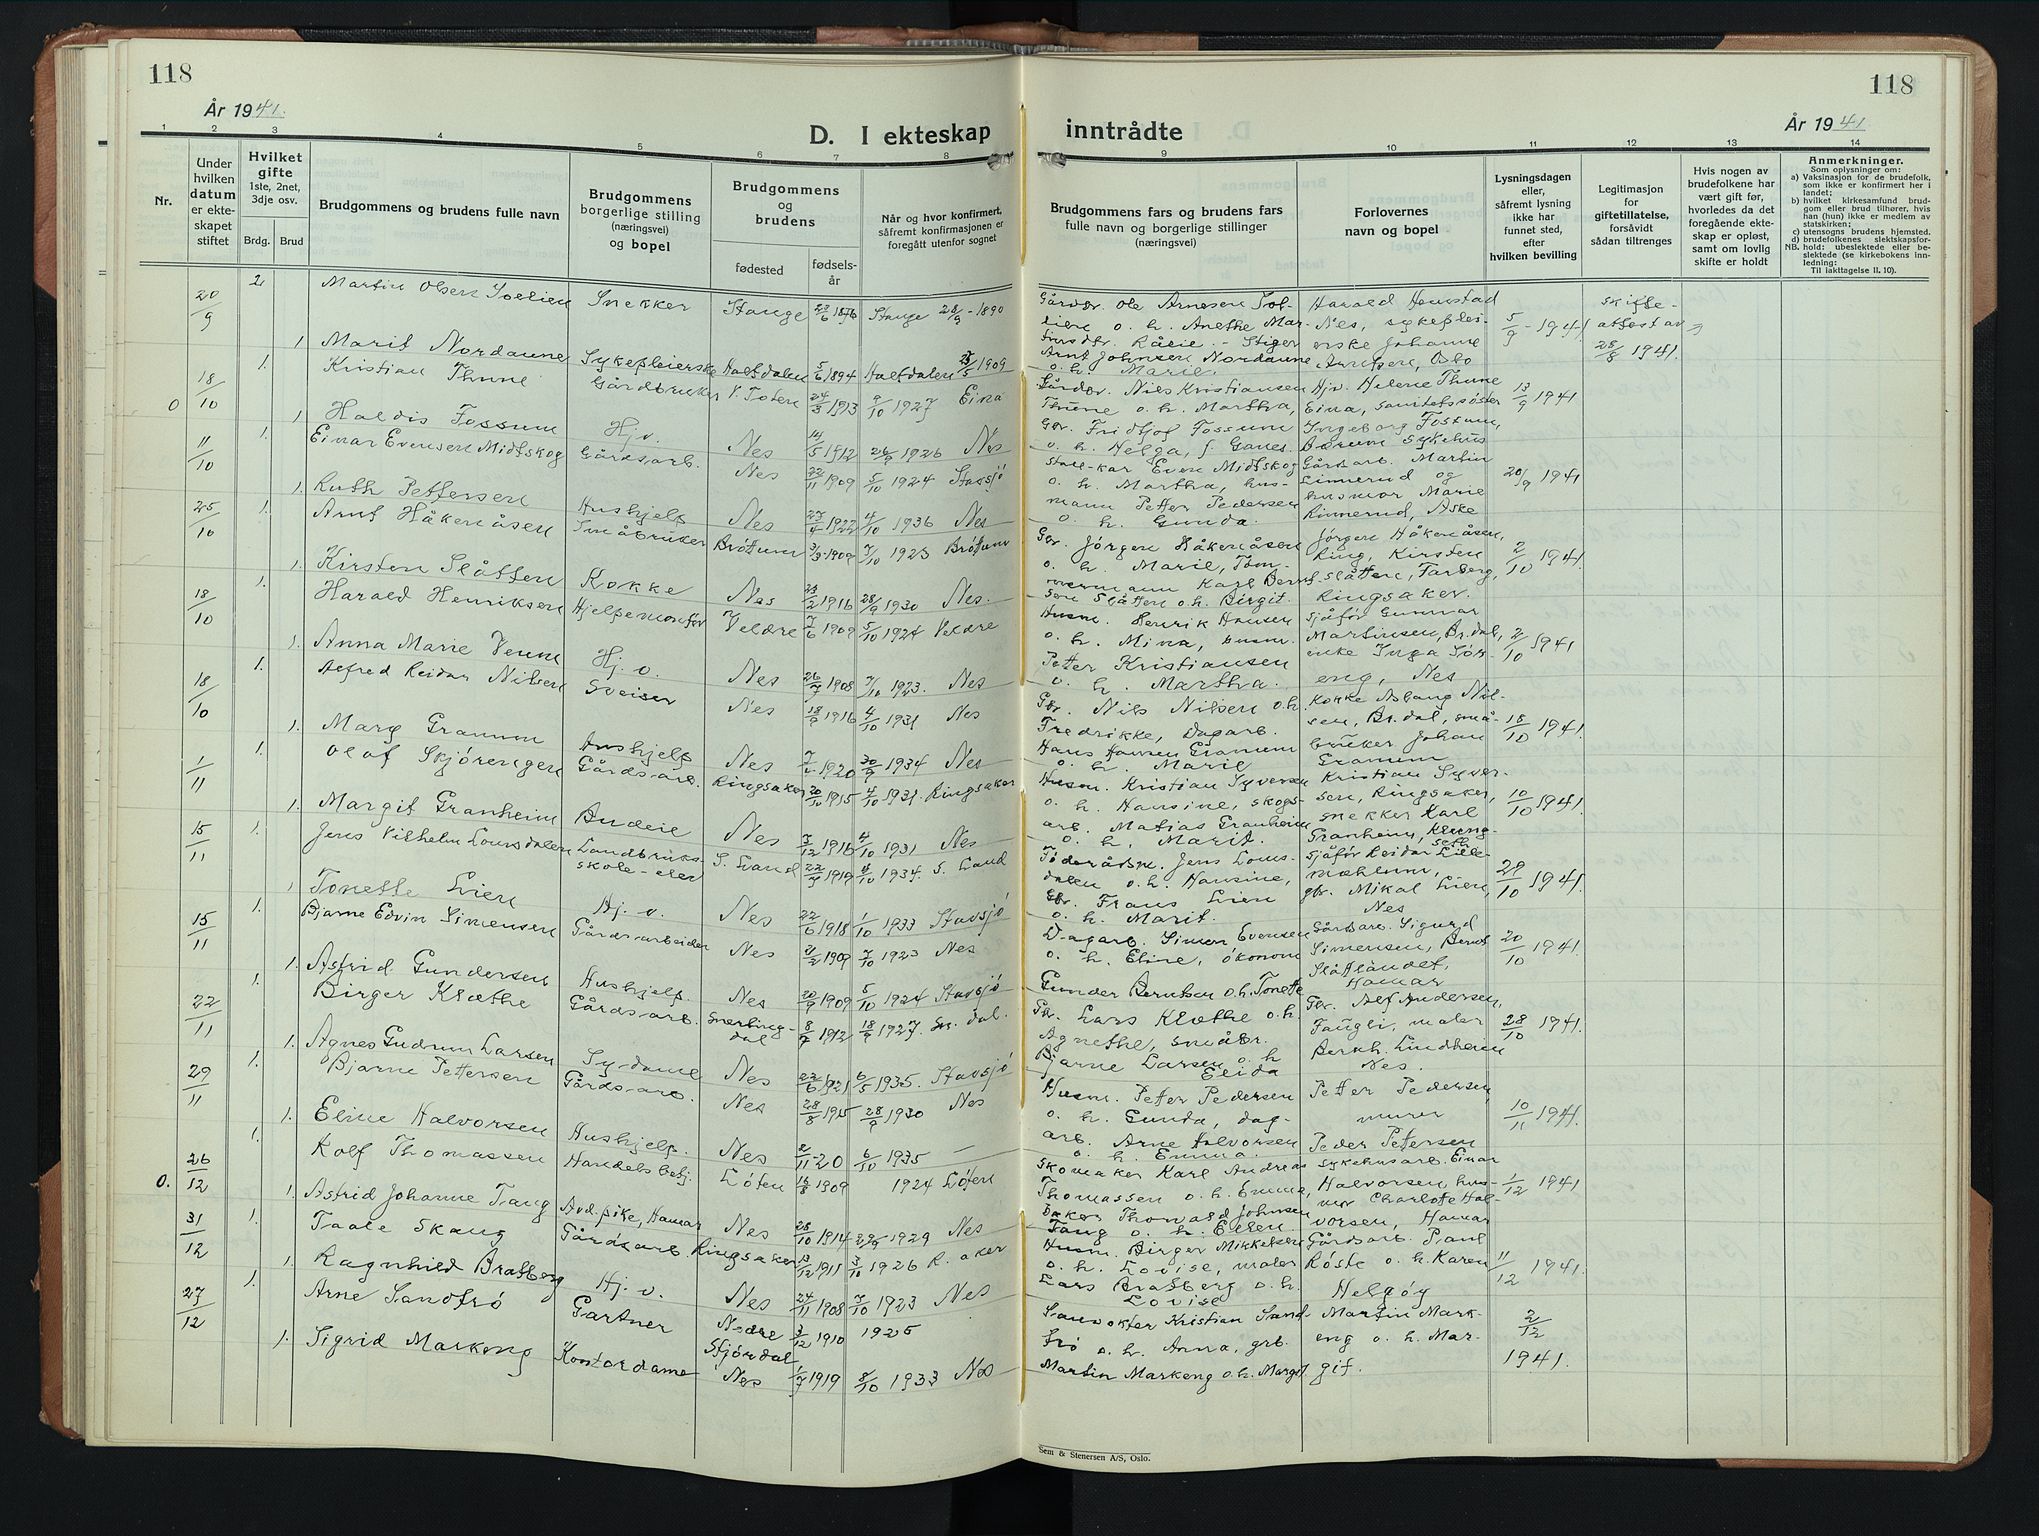 118
År 1941.
D. I ekteskap
1 2 3 4 5 6 7 8
Nr.
Under hvilken datum er ekteskapet stiftet
Hvilket gifte
1ste, 2net, 3dje osv.
Brdg. Brud
Brudgommens og brudens fulle navn
Brudgommens borgerlige stilling (næringsvei) og bopel
Brudgommens og brudens
fødested fødselsår
Når og hvor konfirmert, såfremt konfirmasjonen er foregått utenfor sognet
20/9 2. Martin Olsen Snekker Stange 23/6 1876 Stange 28/9 - 1890
1 Marit Nordaune Sykepleierske Haltdalen 5/6 1894 Haltdalen 1909
0 18/10 1. Kristian Thune Gårdbruker V. Toten 24/3 1913 9/10 1927 Eina
1 Haldis Fossum Hj.v. Nes 14/5 1912 26/9 1926 Nes
11/10 1. Einar Evensen Midtskog Gårdsarb. Nes 22/11 1909 5/10 1924 Stavsjö
1. Ruth Pettersen Hushjelp Nes 27/4 1922 4/10 1936 Nes
25/10 1. Arnt Håkenåsen Småbruker Brøttum 3/3 1909 7/10 1923 Brøttum
1. Kirsten Slåtten Kokke Nes 23/2 1916 28/9 1930 Nes.
18/10 1. Harald Henriksen Hjelpemontør Veldre 7/6 1909 5/10 1924 Veldre
1. Anna Marie Hj.v. Nes 26/7 1908 7/10 1923. Nes
18/10 1. Alfred Reidar Nilsen Sveiser Nes 18/9 1916 4/10 1931 Nes
1. Mary Granum Hushjelp Nes 1920 30/9 1934 Nes
1/11 1. Olaf Skjörengen Gårdsarb. Ringsaker 20/10 1915 4/10 1931. Ringsaker
1. Margit Granheim Budeie Nes 3/12 1916 4/10 1931 Nes
15/11 1. Jens Vilhelm Lounsdalen Landbruksskole-elev S. Land 1919 1934. S. Land
1 Tonette Lien Hj.v. Nes 22/6 1918 1/10 1933 Stavsjö
15/11 1. Bjarne Edvin Simensen Gårdsarbeider Nes 1909 7/10 1923 Nes
1. Astrid Gundersen Hushjelp. Nes 20/9 1909 5/10 1924 Stavsjö
22/11 1. Birger Klæthe Gårdsarb. Snertingdal 8/7 1912 18/9 1927. Sn. dal.
1. Agnes Gudrun Larsen Sydame Nes 22/6 1921 6/5 1935. Stavsjö
29/11 1. Bjarne Pettersen Gårdsarb. Nes 28/8 1915 28/9 1930 Nes
1. Eline Halvorsen Hushjelp. Nes 2/11-20 6/10 1935 —
0. 26/12 1. Rolf Thomassen Handelsbetj. Löten 16/8 1909 1924 Löten
1. Astrid Johanne Tang Avd.pike, Hamar Nes 28/10 1914 1929 Nes
31/12 1. Taale Skaug Gårdsarb. Ringsaker 13/12 1911 3/10 1926 R. aker
1. Ragnhild Bratberg Hj.v. Nes 24/11 1908 7/10 1923 Nes
27/12 1. Arne Sandtrö Gartner Nedre Stjördal 3/12 1910 1925
1. Sigrid Markeng Kontordame Nes 1/7 1919 8/10 1933 Nes
118
År 1941
inntrådte
9 10 11 12 13 14
Brudgommens fars og brudens fars fulle navn og borgerlige stillinger (næringsvei)
Forlovernes navn og bopel
Lysningsdagen eller, såfremt lysning ikke har funnet sted, efter hvilken bevilling
Legitimasjon for giftetillatelse, forsåvidt sådan tiltrenges
Hvis nogen av brudefolkene har vært gift før, hvorledes da det foregående ekteskap er opløst, samt om lovlig skifte er holdt
Anmerkninger.
Som oplysninger om:
a) Vaksinasjon for de brudefolk, som ikke er konfirmert her i landet;
b) hvilket kirkesamfund brudgom eller brud tilhører, hvis han (hun) ikke er medlem av statskirken;
c) utensogns brudens hjemsted.
d) brudefolkenes slektskapsforhold: ubeslektede eller beslektede (se kirkebokens innledning:
NB. Til iakttagelse II. 10).
Gårdbr. Ole Arnesen o. h. Anethe Martinsdtr. Harald Hemstad Nes, sykepleierske Johanne Oslo 5/9 - 1941 skifteattest av 28/8 1941.
Arnt Johnsen Nordaune o. h. Marie.
Gårdbr. Nils Kristiansen Thune o. h. Martha, Hjv. Helene Thune Eina, sanitetssøster 13/9 1941
Gbr. Fridtjof Fossum o. h. Helga, f. Ingeborg Fossum, Bærum sykehus
Stall-kar Even Midtskog o. h. Martha, Gårdsarb. Martin Linnerud og 20/9 1941
husmann Petter Pedersen o. h. Gunda. husmor Marie Rinnerud, Aske
Gbr. Jörgen Håkenåsen o. h. Marie, Jörgen Håkenåsen, Ring, Kirsten 2/10 1941
tömmermann Karl Berntsen Slåtten o.h. Birgit. Slåtten, Farberg, Ringsaker.
Husm. Henrik Hansen o. h. Mina, husm. Sjåför Gunnar Martinsen, Br.dal, 2/10 1941
Petter Kristiansen o. h. Martha. enke Inga Söreng, Nes
Gbr. Nils Nilsen o.h. Fredrikke, Dagarb. Kokke Aslaug Nilsen, Br.dal, små- 18/10 1941.
Hans Hansen Granum o. h. Marie bruker Johan Granum
Husm. Kristian Syversen o. h. Hansine, skogsarb. Kristian Syversen, Ringsaker, 10/10 1941.
Matias Granheim o. h. Marit. snekker Karl Granheim,
Föderådsm. Jens Lounsdalen o. h. Hansine, Sjåför Reidar Lillemæhlum, 29/10 1941.
Gbr. Frans Lien o. h. Marit. gbr. Mikal Lien, Nes
Dagarb. Simen Evensen o. h. Eline, ökonom Gårdsarb. Sigurd Simensen, Bernt 20/10 1941.
Gunder Berntsen o.h. Tonette Slåttlandet, Hamar
Gbr. Lars Klæthe o.h. Agnethe, småbr. Gbr. Alf Andersen, Taugli, maler 28/10 1941.
Bjarne Larsen o. h Elida Berkh. Lindheim Nes.
Husm. Petter Pedersen o. h. Gunda, dagarb. Petter Pedersen, murer 10/11 1941.
Arne Halvorsen o. h. Emma. Peder Pettersen
Skomaker Karl Andreas Thomassen o. h. Emma, sykehusarb. Einar Halvorsen, husmor Charlotte Halvorsen, Hamar 1/12 1941
Baker Thorvald Johnsen Tang o. h. Ellen.
Husm. Birger Mikkelsen o. h. Lovise, maler Gårdsarb. Paul Röste o. h. Karen 11/12 1941.
Lars Bratberg o. h. Lovise Helgöy
Kristian Sandtrö o. h. Anna, grb. Martin Markeng o. h. Margit. 2/12 1941.
Martin Markeng o.h. Margit
Sem & Stenersen A/S, Oslo.